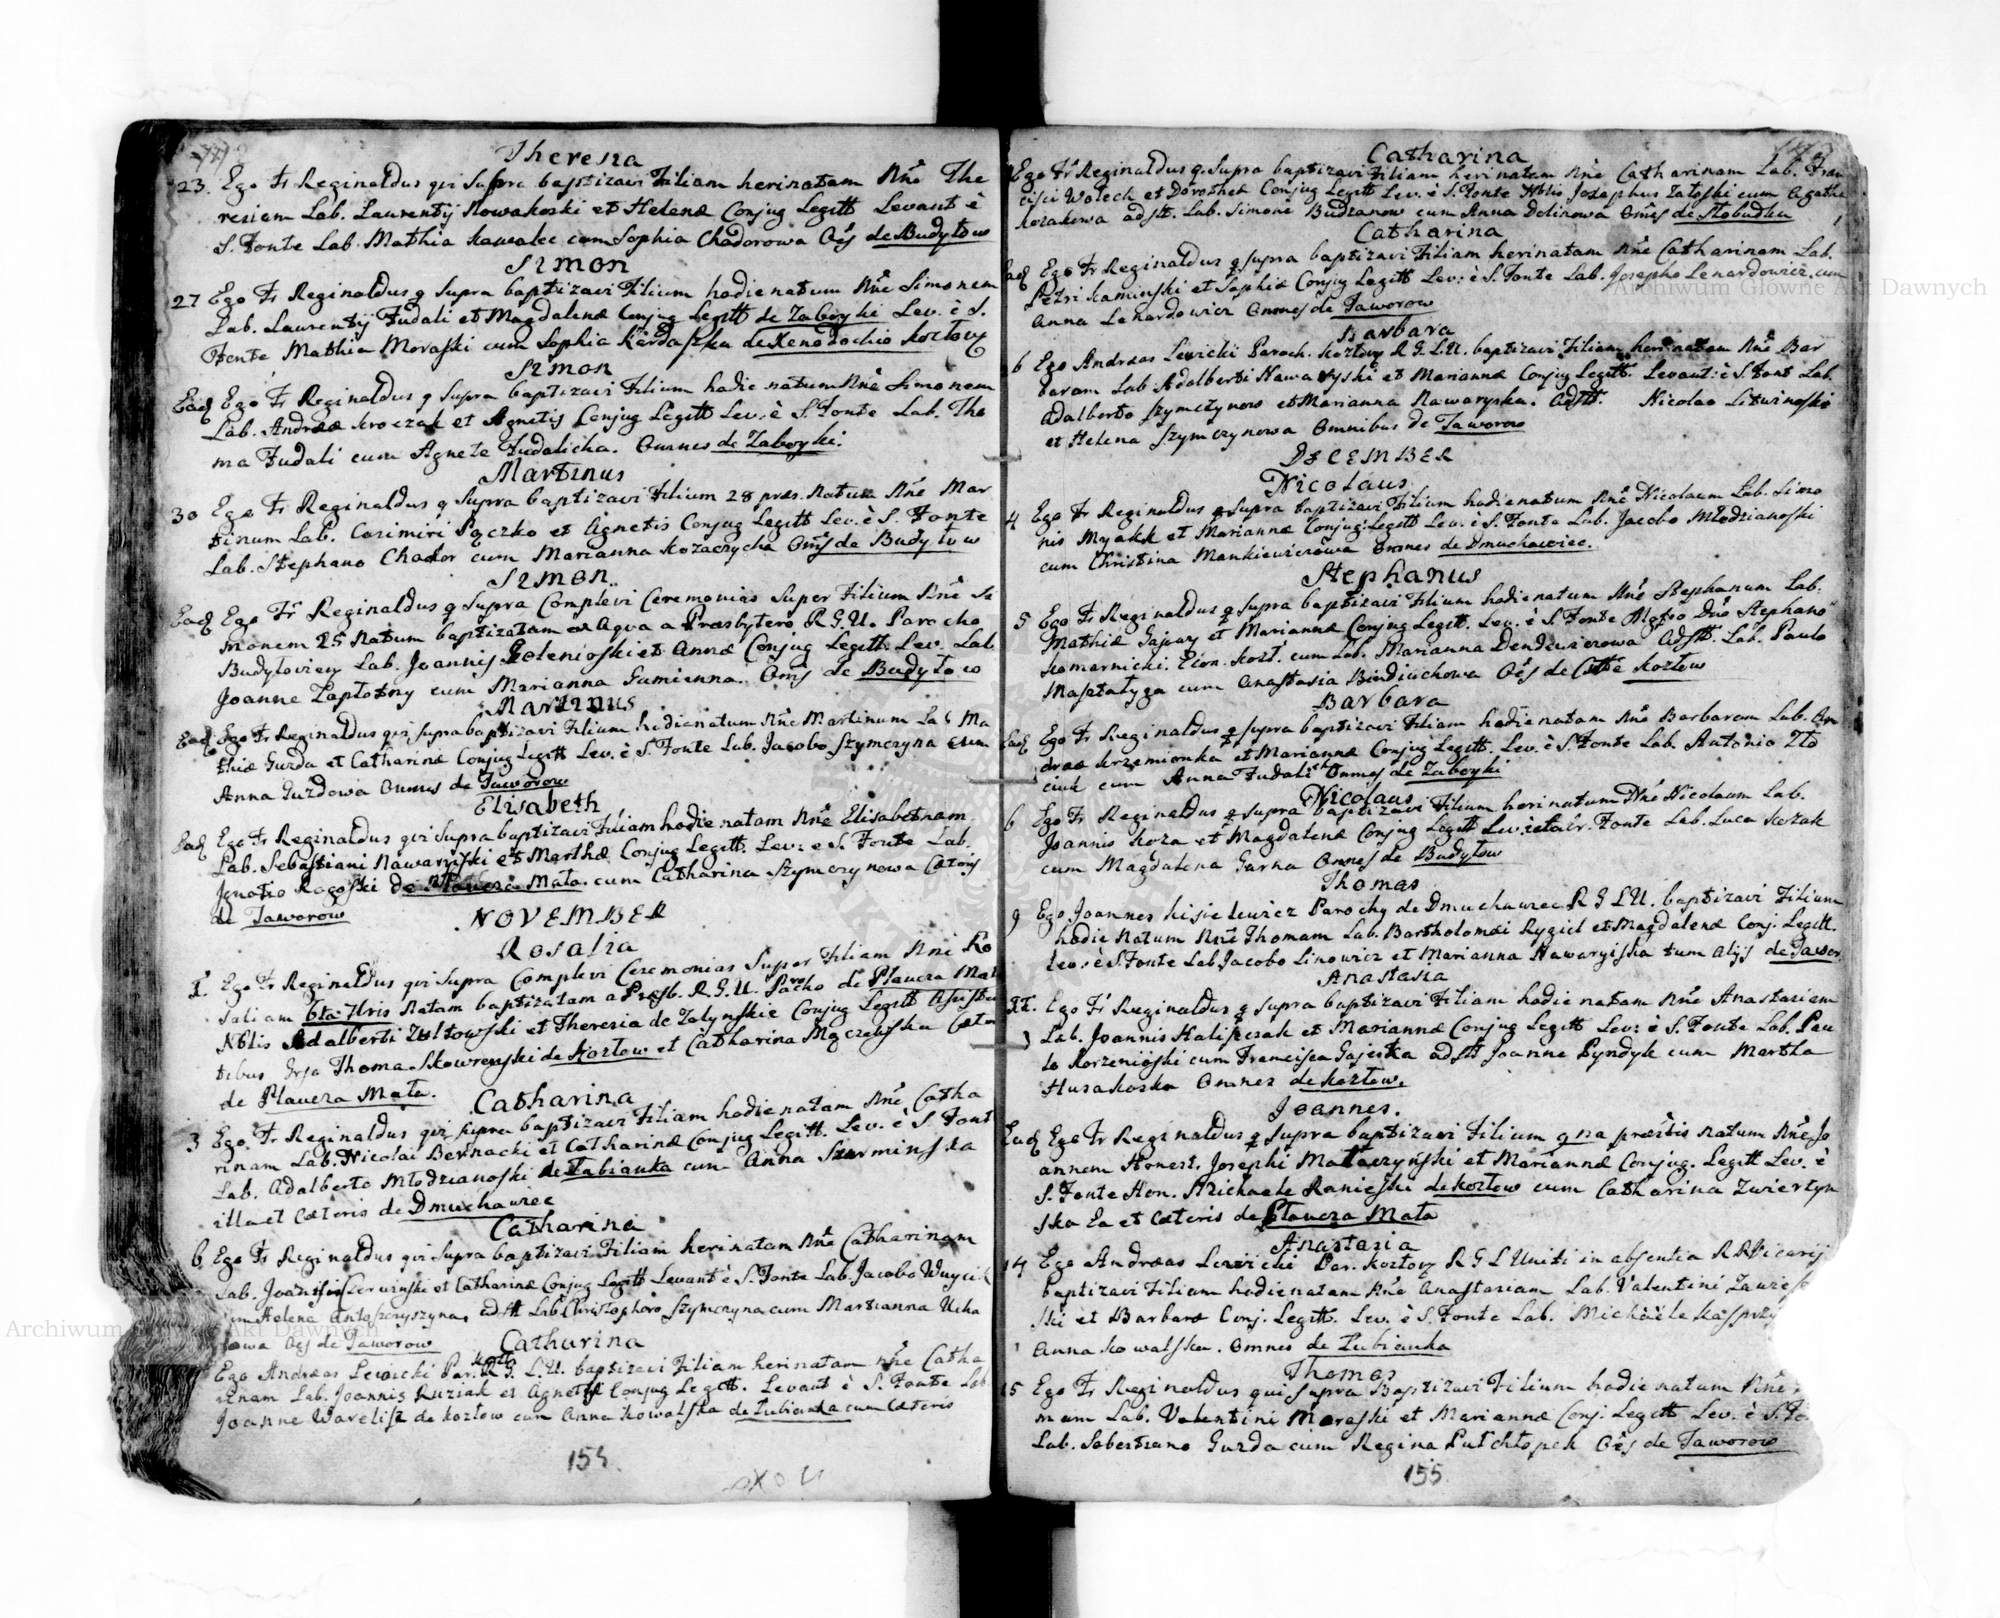 Theresa
23. Ego Fr Reginaldus qui Supra baptizavi Filiam herinatam Nne The
resiam Lab. Laurentij Nowakoski et Helenæ Conjug Legitt Levant è
S. Fonte Lab. Mathia Kawalec cum Sophia Chadorowa Oēs de Budyłow
Simon
27 Ego Fr Reginaldus q Supra baptizavi Filium hodie natum Nne Simonem
Lab. Laurentij Fudali et Magdalenæ Conjug Legitt de Zaboyki Lev. è S.
Fonte Mathia Moraski cum Sophia Kardaszka de Xenodochio Kozłov
Simon
Ead Ego Fr Reginaldus q Supra baptizavi Filium hodie natum Nne Simonem
Lab. Andreæ Kroczak et Agnetis Conjug Legitt Lev. è S. Fonte Lab. Tho
ma Fudali cum Agnete Fudalicha. Omnes de Zaboyki.
Martinus
30 Ego Fr Reginaldus q Supra baptizavi Filium 28 præs. natum Nne Mar
tinum Lab. Casimiri Pączko et Agnetis Conjug Legitt Lev. è S. Fonte
Lab. Stephano Chador cum Marianna Kozaczycha Oms de Budyłow
Simon
Ead Ego Fr Reginaldus q Supra Complevi Ceremonias Super Filium Nne Si
monem 25 Natum baptizatum ex Aqva a Presbytero R.G.U. Parocho
Budyloviey Lab. Joannis Zelenioski et Annæ Conjug Legitt. Lev. Lab.
Joanne Zapłotny cum Marianna Gumienna. Oms de Budyłow
Martinus
Ead Ego Fr Reginaldus qui supra baptizavi Filium hodienatum Nne Martinum Lab Ma
thiæ Gurda et Catharinæ Conjug Legitt Lev. è S. Fonte Lab. Jacobo Szymczyna cum
Anna Gurdowa Omnes de Jaworow
Elisabeth
Ead Ego Fr Reginaldus qui Supra baptizavi Filiam hodie natam Nne Elisabetham
Lab. Sebastiani Nawaryiski et Marthæ Conjug Legitt. Lev: e S. Fonte Lab.
Ignatio Rogoski de Płaucza Mała. cum Catharina Szymczynowa Cæteris
de Jaworow
NOVEMBER
Rosalia
1. Ego Fr Reginaldus qui Supra Complevi Ceremonias Super Filiam Nni Ro
saliam 6ta 7bris Natam baptizatam a Presb. R.G.U. Parocho de Płaucza Mał
Nblis Adalberti Zołtowski et Theresia de Zalynskie Conjug Legitt Assisten
tibus Grso Thoma Skowrenski de Kozłow et Catharina Mączelska Cæte
de Płaucza Mała.
Catharina
3 Ego Fr Reginaldus qui supra baptizavi Filiam hodie natam Nne Catha
rinam Lab. Nicolai Bernacki et Catharinæ Conjug Legitt. Lev. è S. Font
Lab. Adalberto Młodzianoski de Łubianka cum Anna Szurminska
illa et Cæteris de Dmuchawiec
Catharina
6 Ego Fr Reginaldus qui Supra baptizavi Filiam herinatam Nne Catharinam
Lab. Joannis Czerwinski et Catharinæ Conjug Legitt Levant è S. Fonte Lab. Jacobo Wuycik
cum Helena Antoszczyszyna, adstt Lab Christophoro Szymczyna cum Marianna
Oēs de Jaworow
Catharina
Ego Andreas Lewicki Par. Kozło R.G.L.U. baptizavi Filiam herinatam nne Catha
rinam Lab. Joannis Ruziak et Agnetis Conjug Legitt. Levant è S. Fonte Lab
Joanne Warelisz de Kozłow cum Anna Kowalska de Łubianka cum Cæteris
154
Catharina
Ego Fr Reginaldus q. Supra baptizavi Filiam herinatam Nne Catharinam Lab. Fran
cisci Wołoch et Dorotheæ Conjug Legitt Lev. è S. Fonte Nblis Josephus Zatoski cum Agatha
Kozakowa adstt. Lab. Simone Budzanow cum Anna Dolinowa Omes de Słobudka
Catharina
Ead Ego Fr Reginaldus q supra baptizavi Filiam herinatam Nne Catharinam Lab.
Petri Kaminski et Sophiæ Conjug Legitt Lev. è S. Fonte Lab. Josepho Lenardowicz cum
Anna Lenardowicz Omnes de Jaworow
Barbara
6 Ego Andreas Lewicki Paroch. Kozłov R.G.L.U. baptizavi Filiam herinatam Nne Bar
baram Lab Adalberti Nawaryski et Mariannæ Conjug Legitt. Levant: è S. Font Lab.
Adalberto Szymczynow et Marianna Nawaryska. Adstt. Nicolao Litwinoski
et Helena Szymczynowa Omnibus de Jaworow
DECEMBER
Nicolaus
4 Ego Fr Reginaldus q Supra baptizavi Filium hodienatum Nne Nicolaum Lab. Simo
nis Myakk et Mariannæ Conjug: Legitt Lev. è S. Fonte Lab. Jacobo Młodzianoski
cum Christina Mankiewiczowa Omnes de Dmuchawiec.
Stephanus
5 Ego Fr Reginaldus q supra baptizavi Filium hodienatum Nne Stephanum Lab.
Mathiæ Gajury et Mariannæ Conjug Legitt. Lev. è S. Fonte Mgfco Dno Stephano
Komarnicki. Lab. Marianna Dendziurowa Adstt. Lab. Paulo
Masztalyga cum Anastasia Bindiuchowa Oēs de Kozłow
Barbara
Ead Ego Fr Reginaldus q supra baptizavi Filiam hodie natam Nne Barbaram Lab. An
dreæ Krzemionka et Mariannæ Conjug Legitt. Lev. è S. Fonte Lab. Antonio Zło
ciuk cum Anna Fudalicha Omnes de Zaboyki
Nicolaus
6 Ego Fr Reginaldus q supra baptizavi Filium herinatum Nne Nicolaum Lab.
Joannis Koza et Magdalenæ Conjug Legitt Lev. Fonte Lab. Luca Kozak
cum Magdalena Garna Omnes de Budyłow
Thomas
9 Ego Joannes Kisielewicz Parochq de Dmuchawiec R G L U. baptizavi Filium
hodie natum Nne Thomam Lab. Bartholomæi Rygiel et Magdalenæ Conj. Legitt.
Lev: è S. Fonte Lab Jacobo Linowicz et Marianna Nawaryiska tum Alijs de Jawor
Anastasia
11. Ego Fr Reginaldus q supra baptizavi Filiam hodie natam Nne Anastasiam
Lab. Joannis Haliszczak et Mariannæ Conjug Legitt Lev: è S. Fonte Lab. Pau
lo Korzenioski cum Francisca Gajeska adstt Joanne Pyndyk cum Martha
Husakoska Omnes de Kozłow.
Joannes.
Ead Ego Fr Reginaldus q supra baptizavi Filium 9na præsntis natum Nne Jo
annem Honest. Josephi Matlaczyński et Mariannæ Conjug. Legitt Lev. è
S. Fonte Hon. Michaele Ranieski de Kozłow cum Catharina Zwiertyn
ska Ea et Cæteris de Płaucza Mała
Anastasia
14 Ego Andreas Lewicki Par. Kozłov R G L Uniti in absentia R D Vicarij
baptizavi Filiam hodienatam Nne Anastasiam Lab. Valentini Zawie
ski et Barbaræ Conj. Legitt. Lev. è S. Fonte Lab. Michaële Kasprzy
Anna Kowalska. Omnes de Łubianka
Thomas
15 Ego Fr Reginaldus qui supra Baptizavi Filium hodie natum Nne
mam Lab. Valentini Moraski et Mariannæ Conj. Legitt Lev. è S. Fo
Lab. Sebestiano Gurda cum Regina Putchłopek Oēs de Jaworow
155
Archiwum Główne Akt Dawnych
Archiwum Główne Akt Dawnych